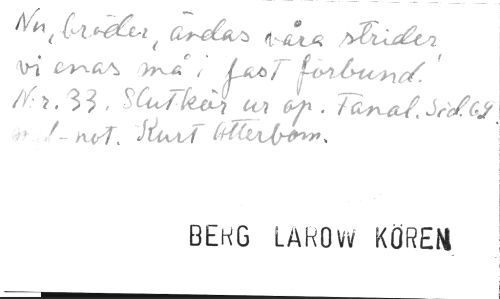 Nu, bröder, ändas våra strider,
vi enas må i fast förbund.
N:r. 33. Slutkör ur op. Fanal. Sid. 62.
not. Kurt Atterbom.
BERG LAROW KÖREN